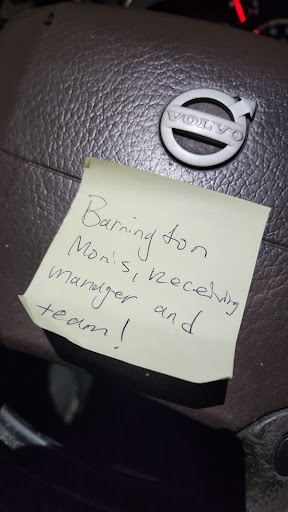 VOLVO
Barrington
Morris, receiving
manager and
team!